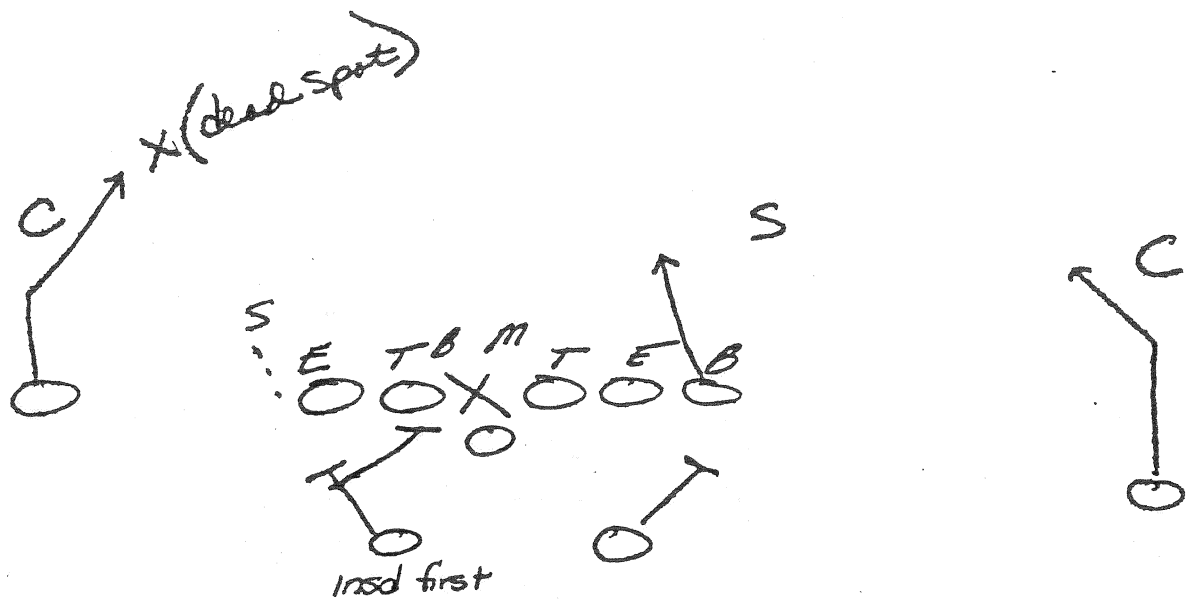 X (dead spot)
C
S
C
S
E T B M T E B
X
insd first